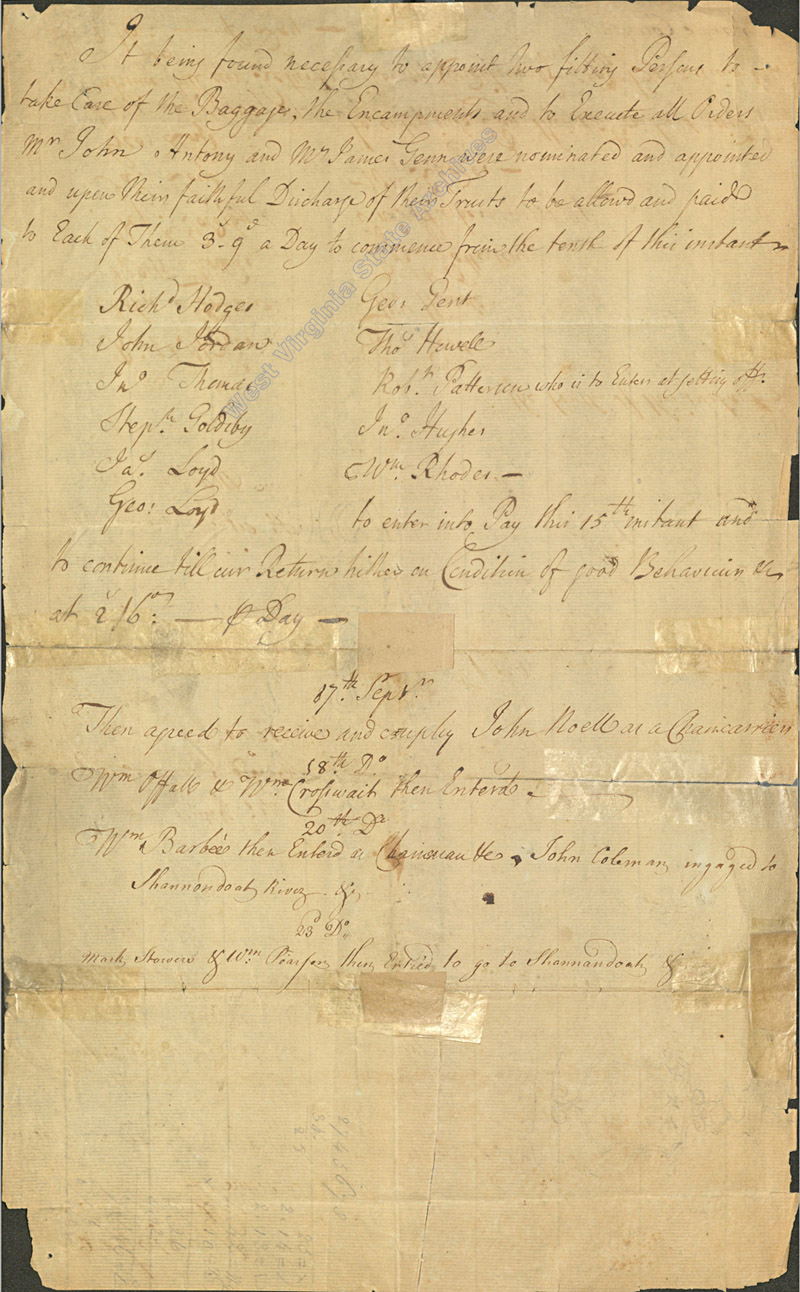 It being found necessary to appoint two fitting Persons to
take Care of the Baggage, the Encampments and to Execute all Orders
Mr John Antony and Mr James Genn were nominated and appointed
and upon their faithful Discharge of their Trusts to be allowd and paid
to Each of Them 3s-9d a Day to commence from the tenth of this instant
Richd Hodges Geor Gent
John Jordan Thos Howell
Jno Thomas Robt Patterson who is to Enter at setting off.
Stephn Goldsby Jno Hughes
Jas Loyd Wm Rhodes —
Geor Loyd
to enter into Pay this 15th instant and
to continue till our Return hither on Condition of good Behaviour &c
at 2/6 — ⅌ Day —
17th Septr
Then agreed to receive and employ John Noell as a Chaincarrier
18th Do
Wm Offall & Wm Crosswait then Enterd
20th Do
Wm Barbee then Enterd as Chainman &c, John Coleman ingaged to
Shannondoah River &c
23d Do
Mark Stowers & Wm Pearson then Entred to go to Shannandoah &c
West Virginia State Archives